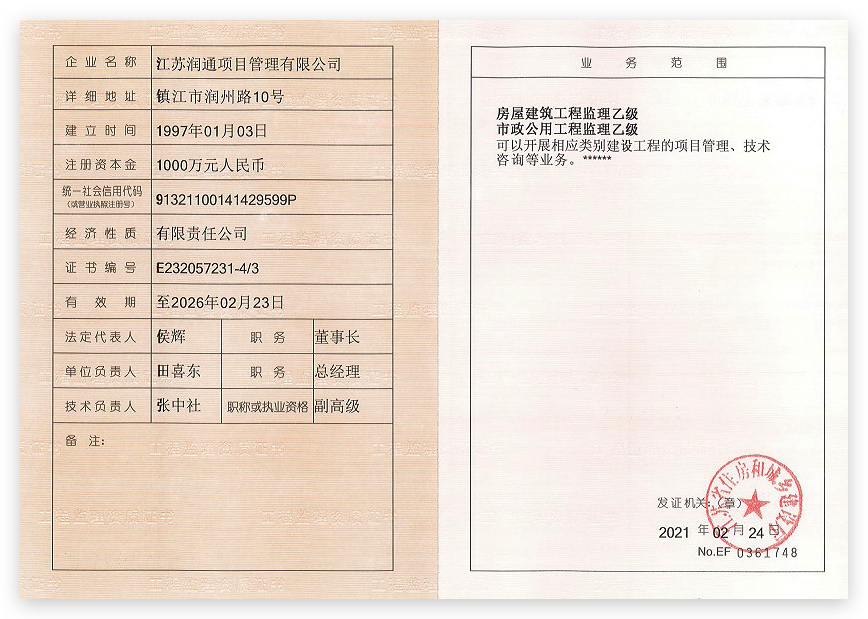 企业名称 江苏润通项目管理有限公司
详细地址 镇江市润州路10号
建立时间 1997年01月03日
注册资本金 1000万元人民币
统一社会信用代码
(或营业执照注册号) 91321100141429599P
经济性质 有限责任公司
证书编号 E232057231-4/3
有效期 至2026年02月23日
法定代表人 侯辉 职务 董事长
单位负责人 田喜东 职务 总经理
技术负责人 张中社 职称或执业资格 副高级
备注:
业务范围
房屋建筑工程监理乙级
市政公用工程监理乙级
可以开展相应类别建设工程的项目管理、技术
咨询等业务。******
发证机关:(章)
江苏省住房和城乡建设厅
2021 年 02 月 24 日
No.EF 0361748